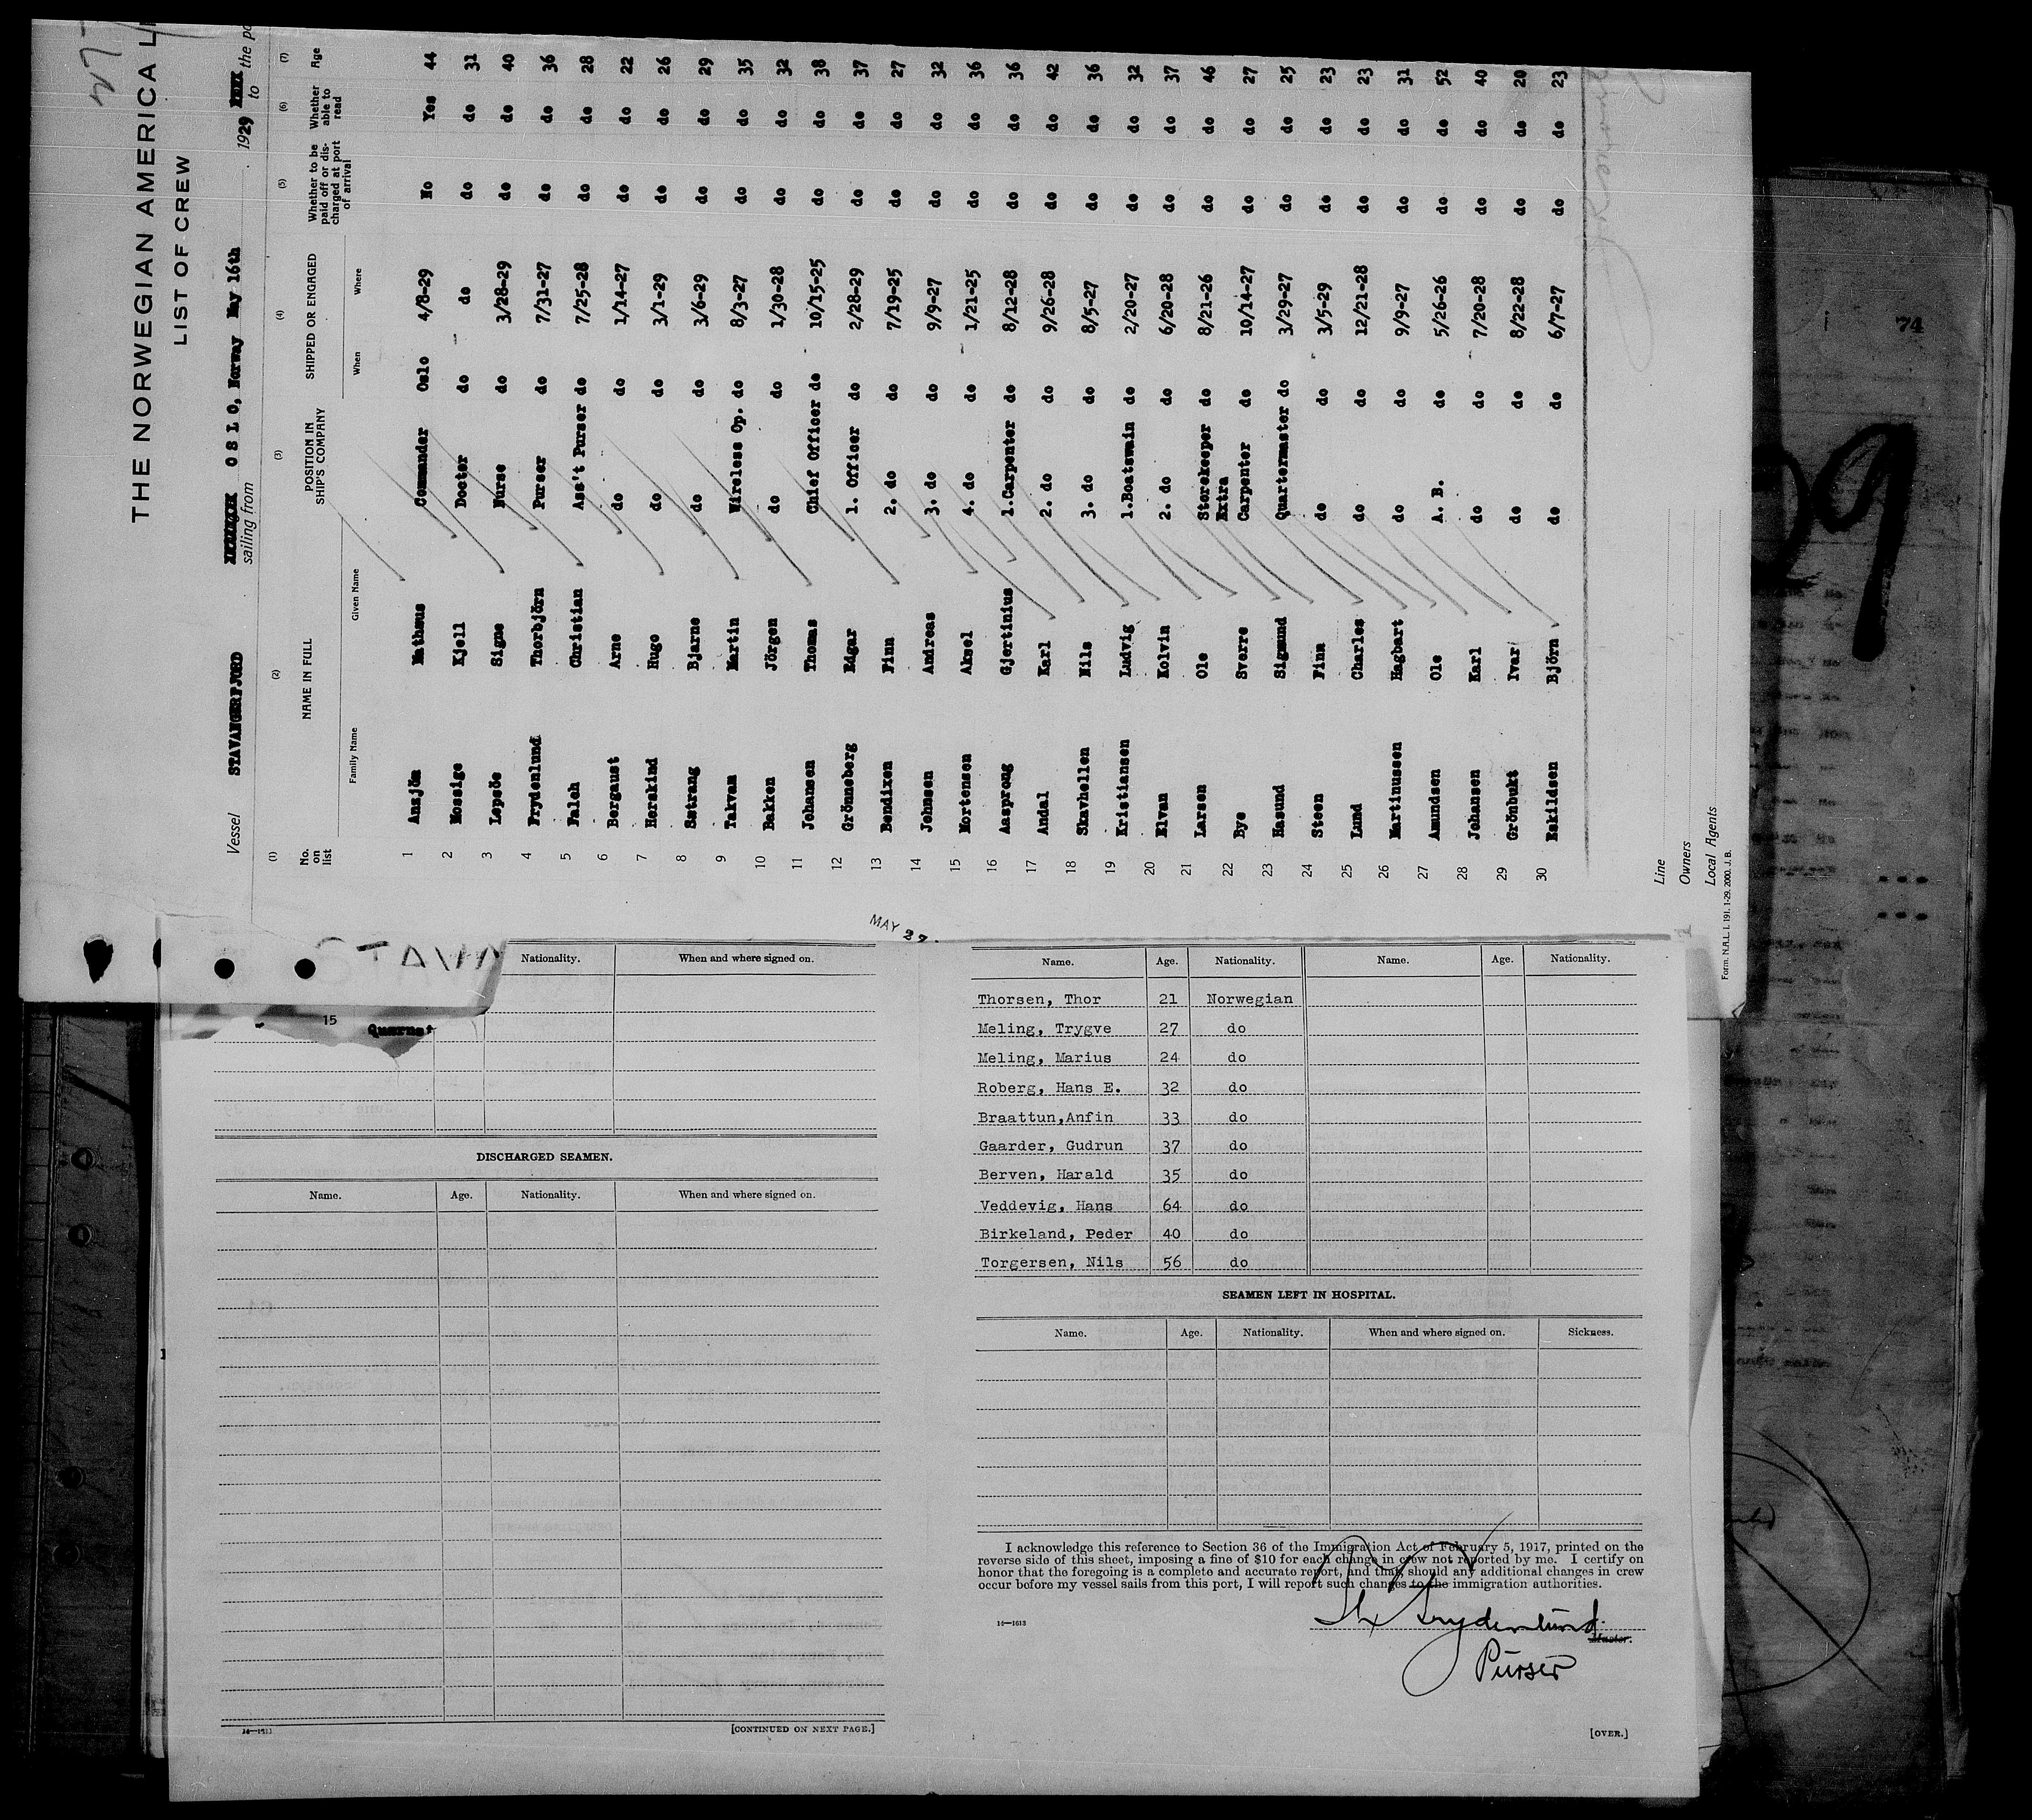 THE NORWEGIAN AMERICA L
LIST OF CREW
Vessel STAVANGERFJORD sailing from O S L O, Norway May 16th 1929 to the po
(1) (2) (3) (4) (5) (6) (7)
No. on list NAME IN FULL POSITION IN SHIP'S COMPANY SHIPPED OR ENGAGED Whether to be paid off or discharged at port of arrival Whether able to read Age
Family Name Given Name When Where
1 Aansjön Mathæus Commander Oslo 4/8-29 No Yes 44
2 Mossige Kjell Doctor do do do do 31
3 Lepsöe Signe Nurse do 3/28-29 do do 40
4 Frydenlund Thorbjörn Purser do 7/31-27 do do 36
5 Faleh Christian Ass't Purser do 7/25-28 do do 28
6 Bergaust Arne do do 1/14-27 do do 22
7 Herskind Hugo do do 3/1-29 do do 26
8 Sætrang Bjarne do do 3/6-29 do do 29
9 Takvam Martin Wireless Op. do 8/3-27 do do 35
10 Bakken Jörgen do do 1/30-28 do do 32
11 Johansen Thomas Chief Officer do 10/15-25 do do 38
12 Grönneberg Edgar 1. Officer do 2/28-29 do do 37
13 Bendixen Finn 2. do do 7/19-25 do do 27
14 Johnsen Andreas 3. do do 9/9-27 do do 32
15 Mortensen Aksel 4. do do 1/21-25 do do 36
16 Aasprong Gjertinius 1.Carpenter do 8/12-28 do do 36
17 Andal Karl 2. do do 9/26-28 do do 42
18 Skavhellen Nils 3. do do 8/5-27 do do 36
19 Kristiansen Ludvig 1.Boatswain do 2/20-27 do do 32
20 Elvan Kolvin 2. do do 6/20-28 do do 37
21 Larsen Ole Storekeeper do 8/21-26 do do 46
22 Bye Sverre Extra Carpenter do 10/14-27 do do 27
23 Hasund Sigmund Quartermaster do 3/29-27 do do 25
24 Steen Finn do do 3/5-29 do do 23
25 Lund Charles do do 12/21-28 do do 23
26 Martinussen Hagbart do do 9/9-27 do do 31
27 Amundsen Ole A. B. do 5/26-26 do do 52
28 Johansen Karl do do 7/20-28 do do 40
29 Grönbukt Ivar do do 8/22-28 do do 20
30 Eskildsen Björn do do 6/7-27 do do 23
Line
Owners
Local Agents
Form. N.A.L. I. 191. 1-29. 2000. J. B.
MAY 27
74
Nationality. When and where signed on.
15
DISCHARGED SEAMEN.
Name. Age. Nationality. When and where signed on.
[CONTINUED ON NEXT PAGE.]
Name. Age. Nationality. Name. Age. Nationality.
Thorsen, Thor 21 Norwegian
Meling, Trygve 27 do
Meling, Marius 24 do
Roberg, Hans E. 32 do
Braattun,Anfin 33 do
Gaarder, Gudrun 37 do
Berven, Harald 35 do
Veddevig, Hans 64 do
Birkeland, Peder 40 do
Torgersen, Nils 56 do
SEAMEN LEFT IN HOSPITAL.
Name. Age. Nationality. When and where signed on. Sickness.
I acknowledge this reference to Section 36 of the Immigration Act of February 5, 1917, printed on the
reverse side of this sheet, imposing a fine of $10 for each change in crew not reported by me. I certify on
honor that the foregoing is a complete and accurate report, and that, should any additional changes in crew
occur before my vessel sails from this port, I will report such changes to the immigration authorities.
14—1613
Th Frydenlund
Master.
Purser
[OVER.]